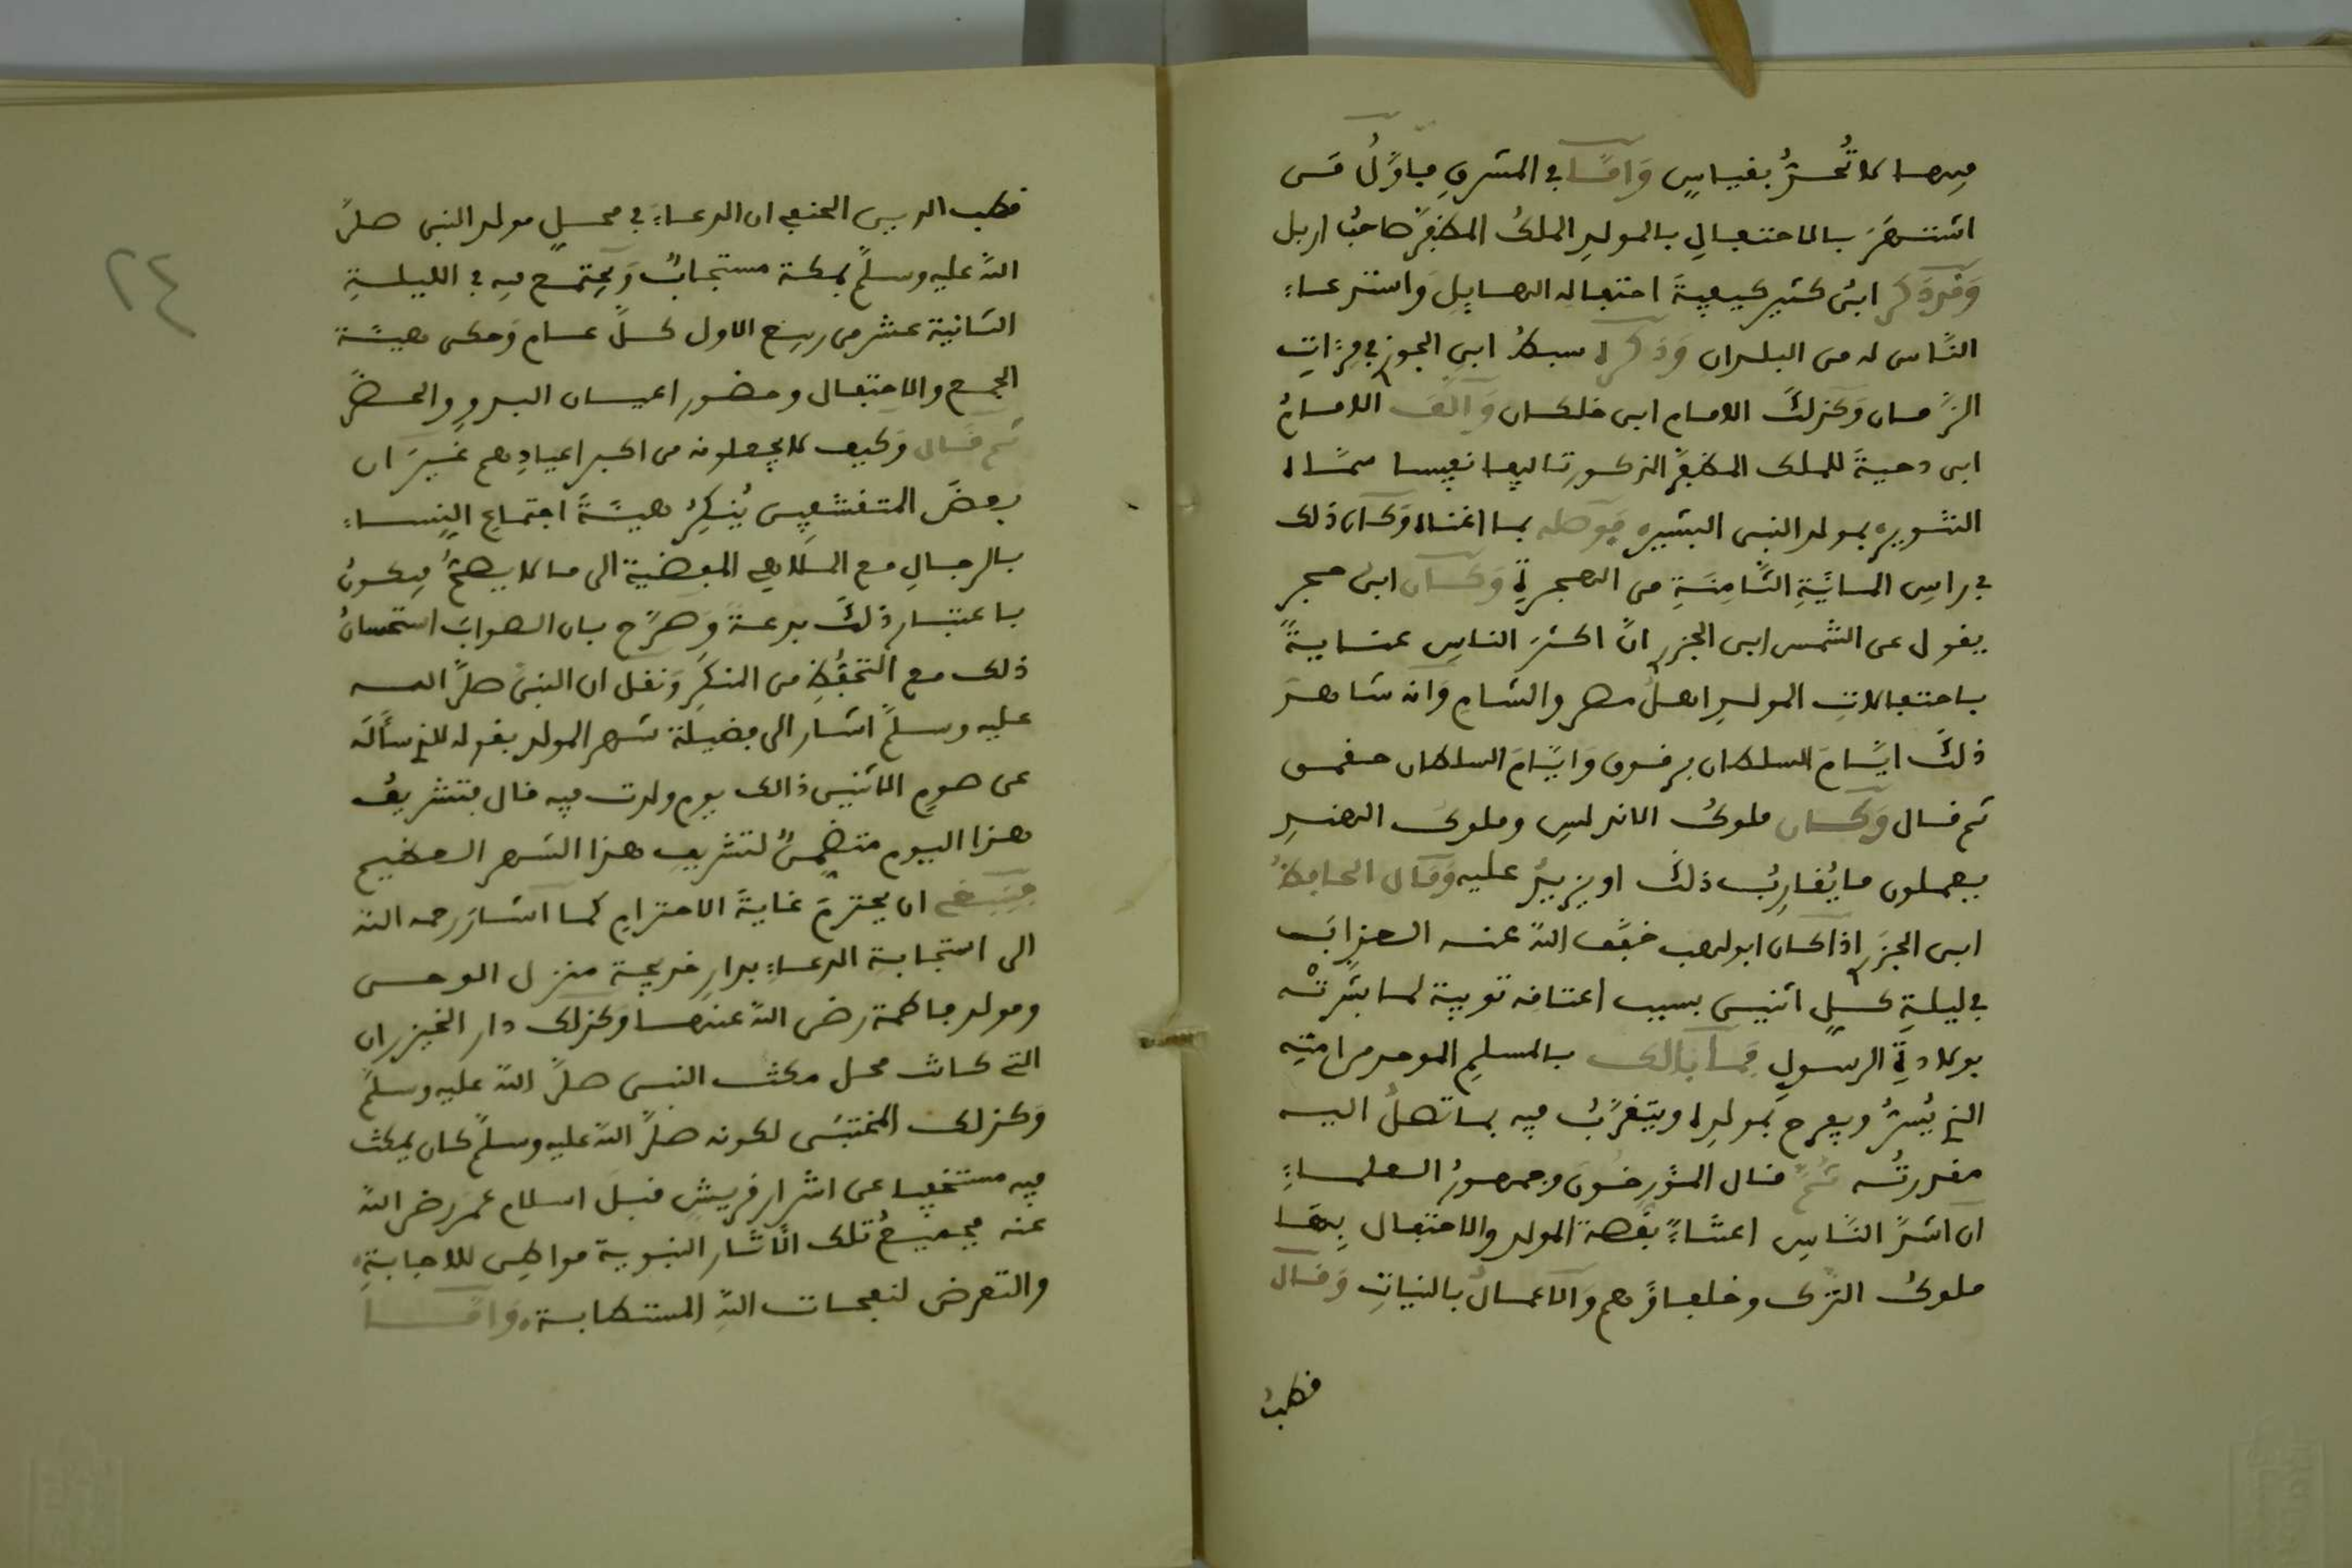 فيها لا تُحدُّ بقياسٍ وَامّا في المشرقِ فاوّلُ من
اشتهرَ بالاحتفالِ بالمولدِ الملكُ المظفرُ صاحبُ اربل
وَقد ذكر ابنُ كثير كيفيةَ احتفاله الهايلِ وَاستدعاء
النّاس له من البلدان وَذكرهُ سبطُ ابنِ الجوزي في مرّاتِ
الزّمان وَكذلكَ الامام ابن خلكان وَالّفَ الامامُ
ابن دحيةَ للملك المظفرِ المذكورِ تاليفا نفيسا سمّاه
التنوير بمولد النبي البشير فوصله بما اغناه وَكان ذلك
في راسِ المائيَّةِ الثّامِنَةِ من الهجرةِ وَكان ابن حجر
يقول عن الشمس ابن الجزري انّ اكثرَ الناسِ عنايةً
باحتفالاتِ المولدِ اهلُ مصر والشام وَانه شاهدَ
ذلكَ ايّامَ السلطان برقوق وَايّامَ السلطان جقمق
ثم قال وَكان ملوكُ الاندلسِ وملوك الهندِ
يعملون ما يُقاربُ ذلكَ او يزيدُ عليه وَقال الحافظُ
ابن الجزري اذا كان ابو لهب خفَّف اللهُ عنه العذابَ
في ليلةِ كلِّ اثنين بسبب اعتاقه ثويبة لما بشّرتْه
بولادةِ الرسولِ فما بالك بالمسلمِ الموحد من امتِه
الذي يُسرُّ ويفرح بمولدِه ويتقرّبُ فيه بما تصلُ اليه
مقدرتُه ثمّ قال المؤرخون وجمهورُ العلماءِ
ان اشدّ النّاسِ اعتناءً بقصة المولد والاحتفال بِهَا
ملوكُ الترك وخلفاؤهم وَالاعمالُ بالنياتِ وَقال
قطبُ
قطب الدين الحنفي ان الدعاءَ في محلِ مولد النبي صلّى
اللهُ عليه وسلّمَ بمكة مستجابٌ وَيجتمع فيه في الليلةِ
الثانية عشر من ربيع الاول كلّ عام وَحكى هيئة
الجمع والاحتفال وحضور اعيان البدوِ والحضر
ثم قال وَكيف لا يجعلونه من اكبر اعيادِهم غيرَ ان
بعضَ المتقشفين يُنكِرُ هيئةَ اجتماعِ النِساءِ
بالرجالِ مع الملاهي المفضية الى ما لا يصحُّ فيكونُ
باعتبار ذلكَ بدعةً وَصرّح بان الصوابَ استحسانُ
ذلك مع التحفّظِ من المنكرِ وَنقل ان النبيَ صلّى الله
عليه وسلّمَ اشار الى فضيلة شهر المولد بقوله للذي سأَلَه
عن صومِ الاثنين ذالك يوم ولدت فيه قال فتشريفُ
هذا اليوم متضمِنٌ لتشريفِ هذا الشهر العظيم
فينبغي ان يحترمَ غايةَ الاحترامِ كما اشارَ رحمه الله
الى استجابة الدعاءِ بدارِ خديجة منزل الوحى
ومولد فاطمة رضي اللهُ عنها وكذلك دار الخيزران
التي كانت محل مكث النبي صلّى اللهُ عليه وسلّمَ
وَكذلك المختبَى لكونه صلّى اللهُ عليه وسلّمَ كان يمكث
فيه مستخفيا عن اشرار قريشٍ قبلَ اسلام عمر رضي اللهُ
عنه فجميعُ تلك الآثار النبوية مواطِن للاجابةِ
والتعرض لنفحات اللهِ المستطابة، وَامّا
٢٤